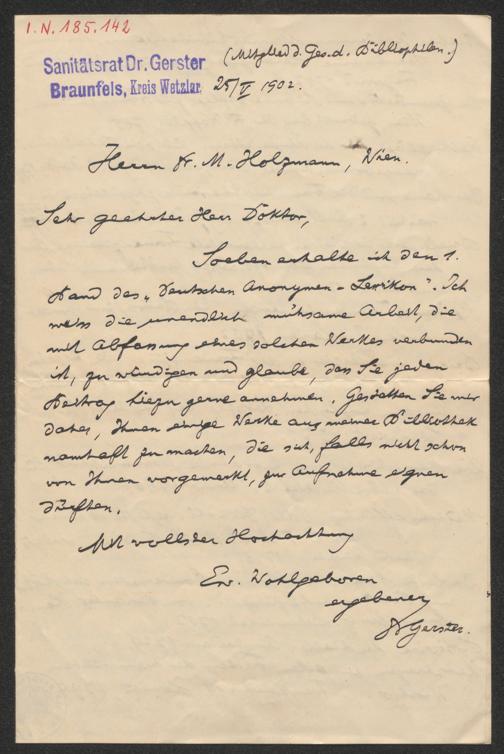 I.N. 185.142
Sanitätsrat Dr. Gerster
Braunfels, Kreis Wetzlar.
(Mitglied d. Ges. d. Bibliophilen.)
25/V 1902.
Herrn Dr. M. Holzmann, Wien.
Sehr geehrter Herr Doktor,
Soeben erhalte ich den 1.
Band des „Deutschen Anonymen-Lexikon". Ich
weiss die unendlich mühsame Arbeit, die
mit Abfassung eines solchen Werkes verbunden
ist, zu würdigen und glaube, dass Sie jeden
Beitrag hiezu gerne annehmen. Gestatten Sie mir
daher, Ihnen einige Werke aus meiner Bibliothek
namhaft zu machen, die sich, falls nicht schon
von Ihnen vorgemerkt, zur Aufnahme eignen
dürften.
Mit vollster Hochachtung
Ew. Wohlgeboren
ergebener
Dr Gerster.